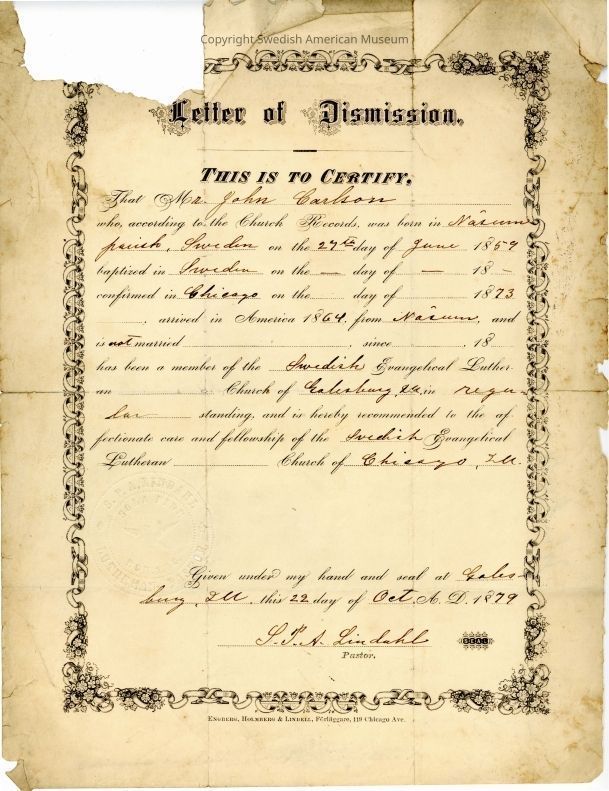 Copyright Swedish American Museum
Letter of Dismission.
THIS IS TO CERTIFY,
That Mr. John Carlson
who, according to the Church Records, was born in Näsum
parish, Sweden on the 27th day of June 1859
baptized in Sweden on the — day of — 18 -
confirmed in Chicago on the day of 1873
arrived in America 1864, from Näsum, and
is not married , since , 18
has been a member of the Swedish Evangelical Luther-
an Church of Galesburg, Ill, in regu-
lar standing, and is hereby recommended to the af-
fectionate care and fellowship of the Swedish Evangelical
Lutheran Church of Chicago, Ill.
Given under my hand and seal at Gales-
burg, Ill, this 22 day of Oct. A. D. 1879
S. P. A. Lindahl
SEAL
Pastor.
ENGBERG, HOLMBERG & LINDELL, Förläggare, 119 Chicago Ave.